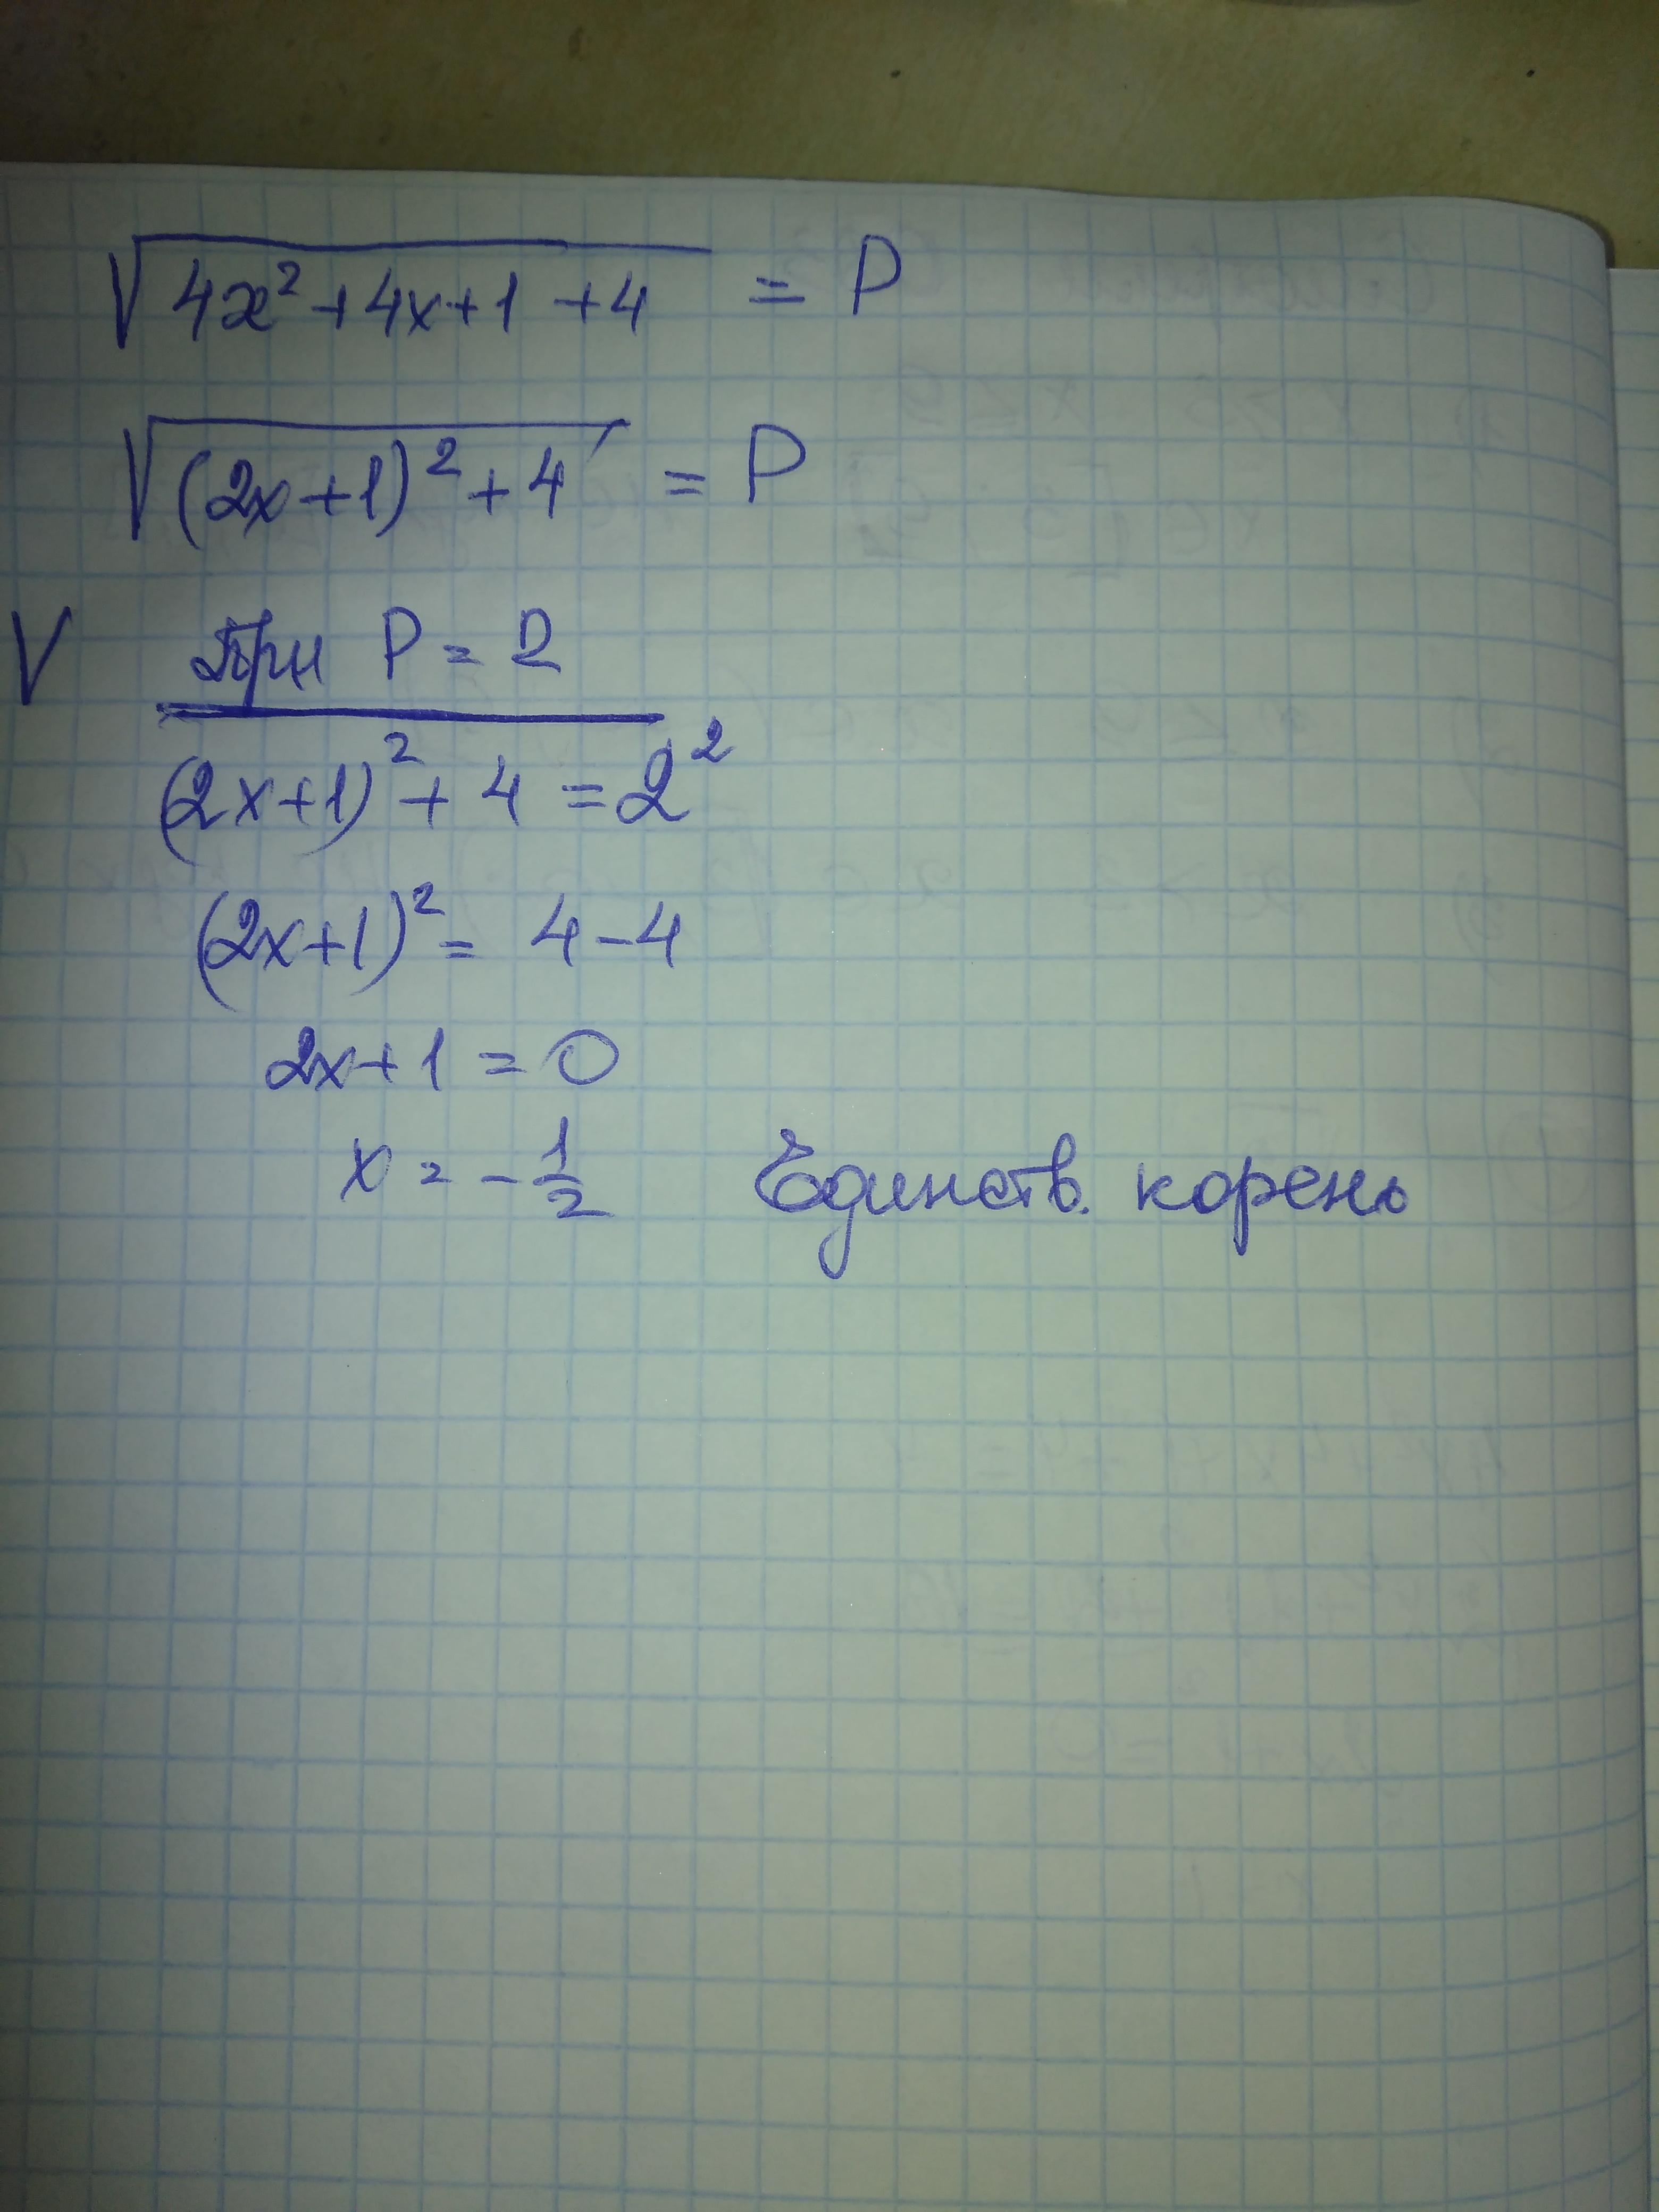 √4x²+4x+1+4 = P
√(2x+1)²+4 = P
V При P = 2
(2x+1)²+4 = 2²
(2x+1)² = 4-4
2x+1 = 0
x = -1/2 Единств. корень